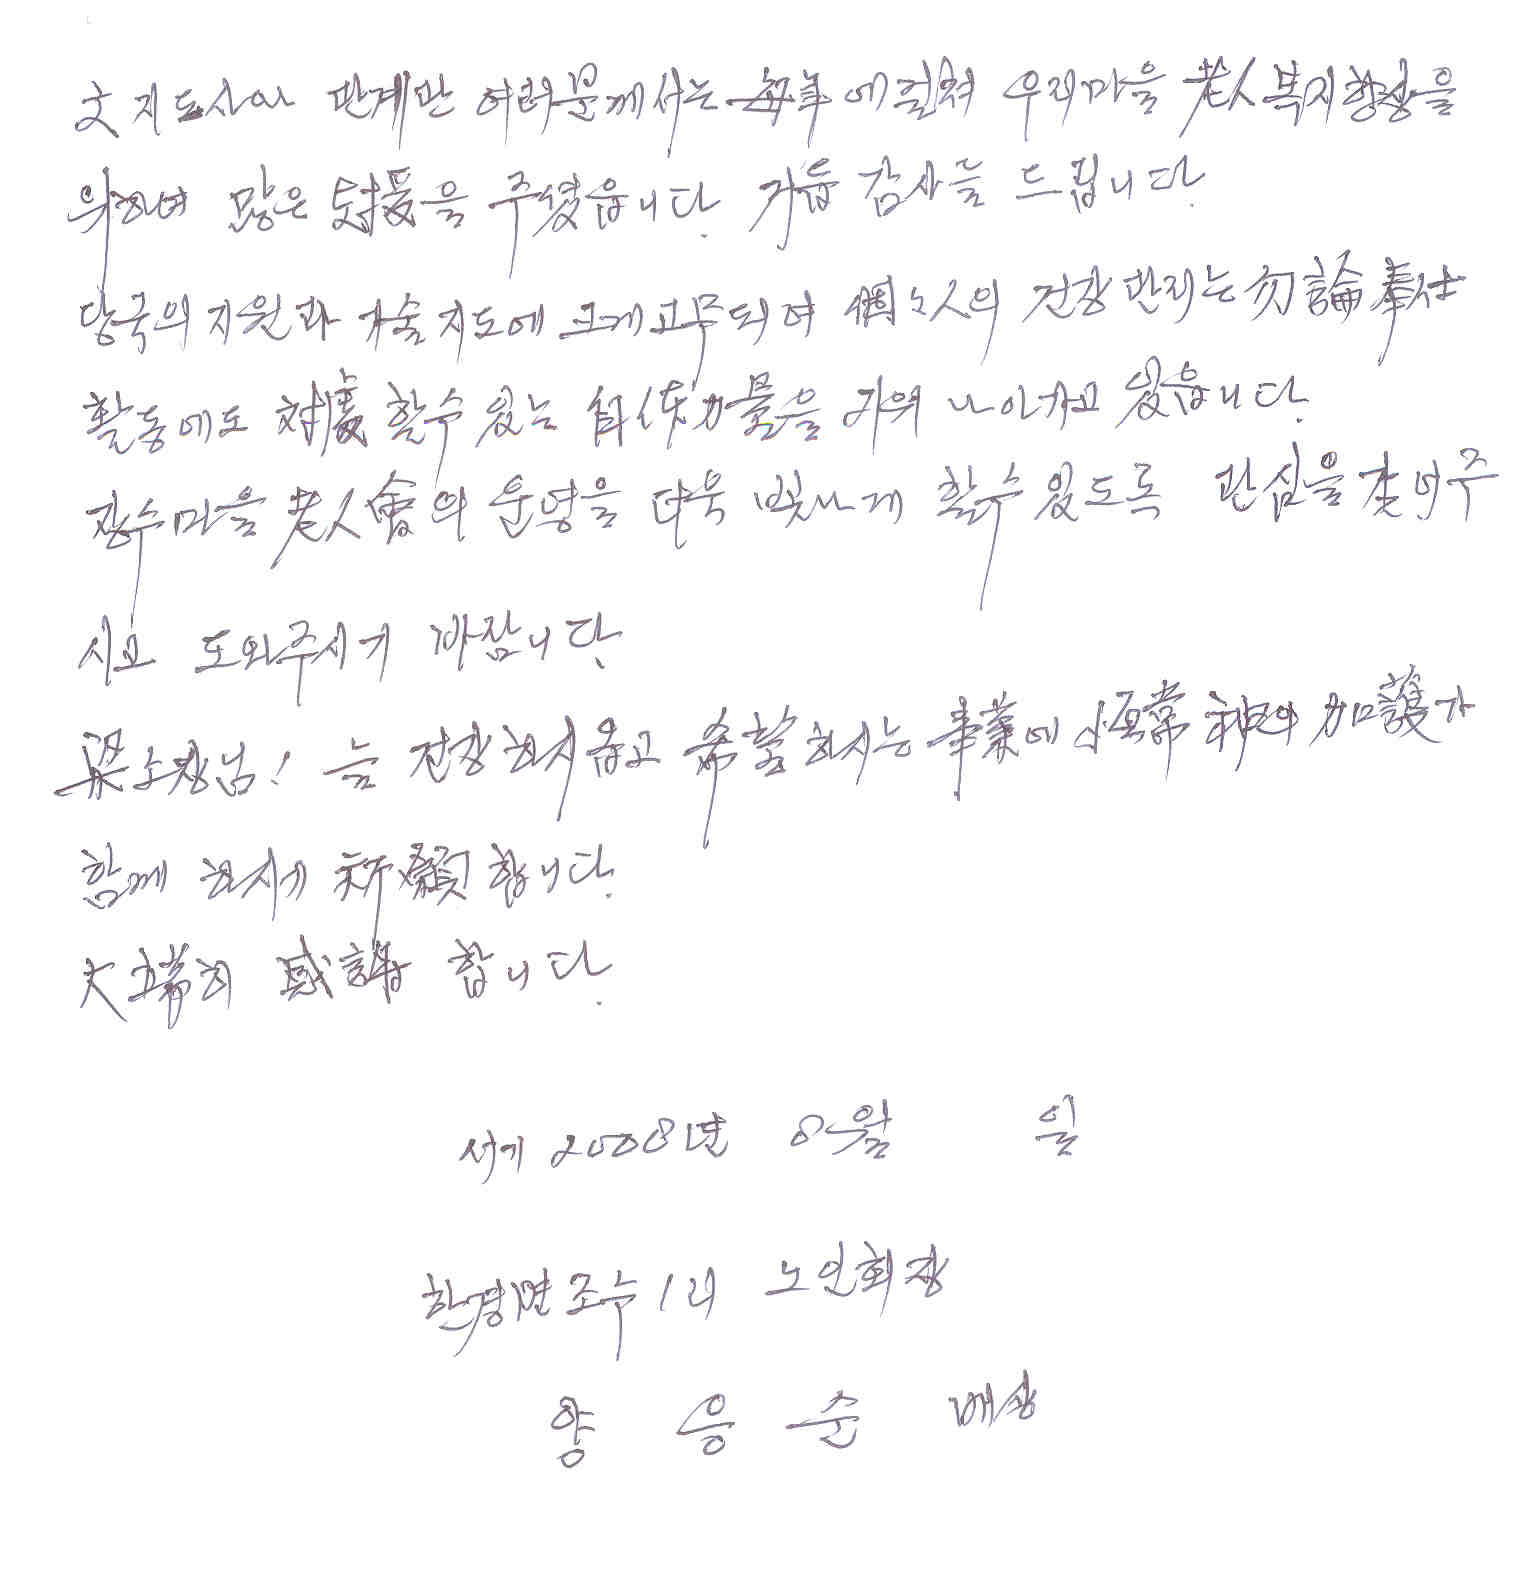 文 지도사와 관계관 여러분께서는 每年에 걸쳐 우리마을 老人복지향상을
위하여 많은 対援을 주셨읍니다. 거듭 감사를 드립니다.
당국의 지원과 기술지도에 크게 고무되여 個々人의 건강관리는 勿論 奉仕
활동에도 対處 할수 있는 自体力量을 키워 나아가고 있읍니다.
장수마을 老人會의 운영을 더욱 빛나게 할수 있도록 관심을 갖어주
시고 도와주시기 바랍니다.
梁소장님! 늘 건강하시옵고 希望하시는 事業에 恒常 神의 加護가
함께 하시기 祈願합니다.
大端히 感謝 합니다.
서기 2008년 8월 일
한경면 조수1리 노인회장
양 응 준 배상